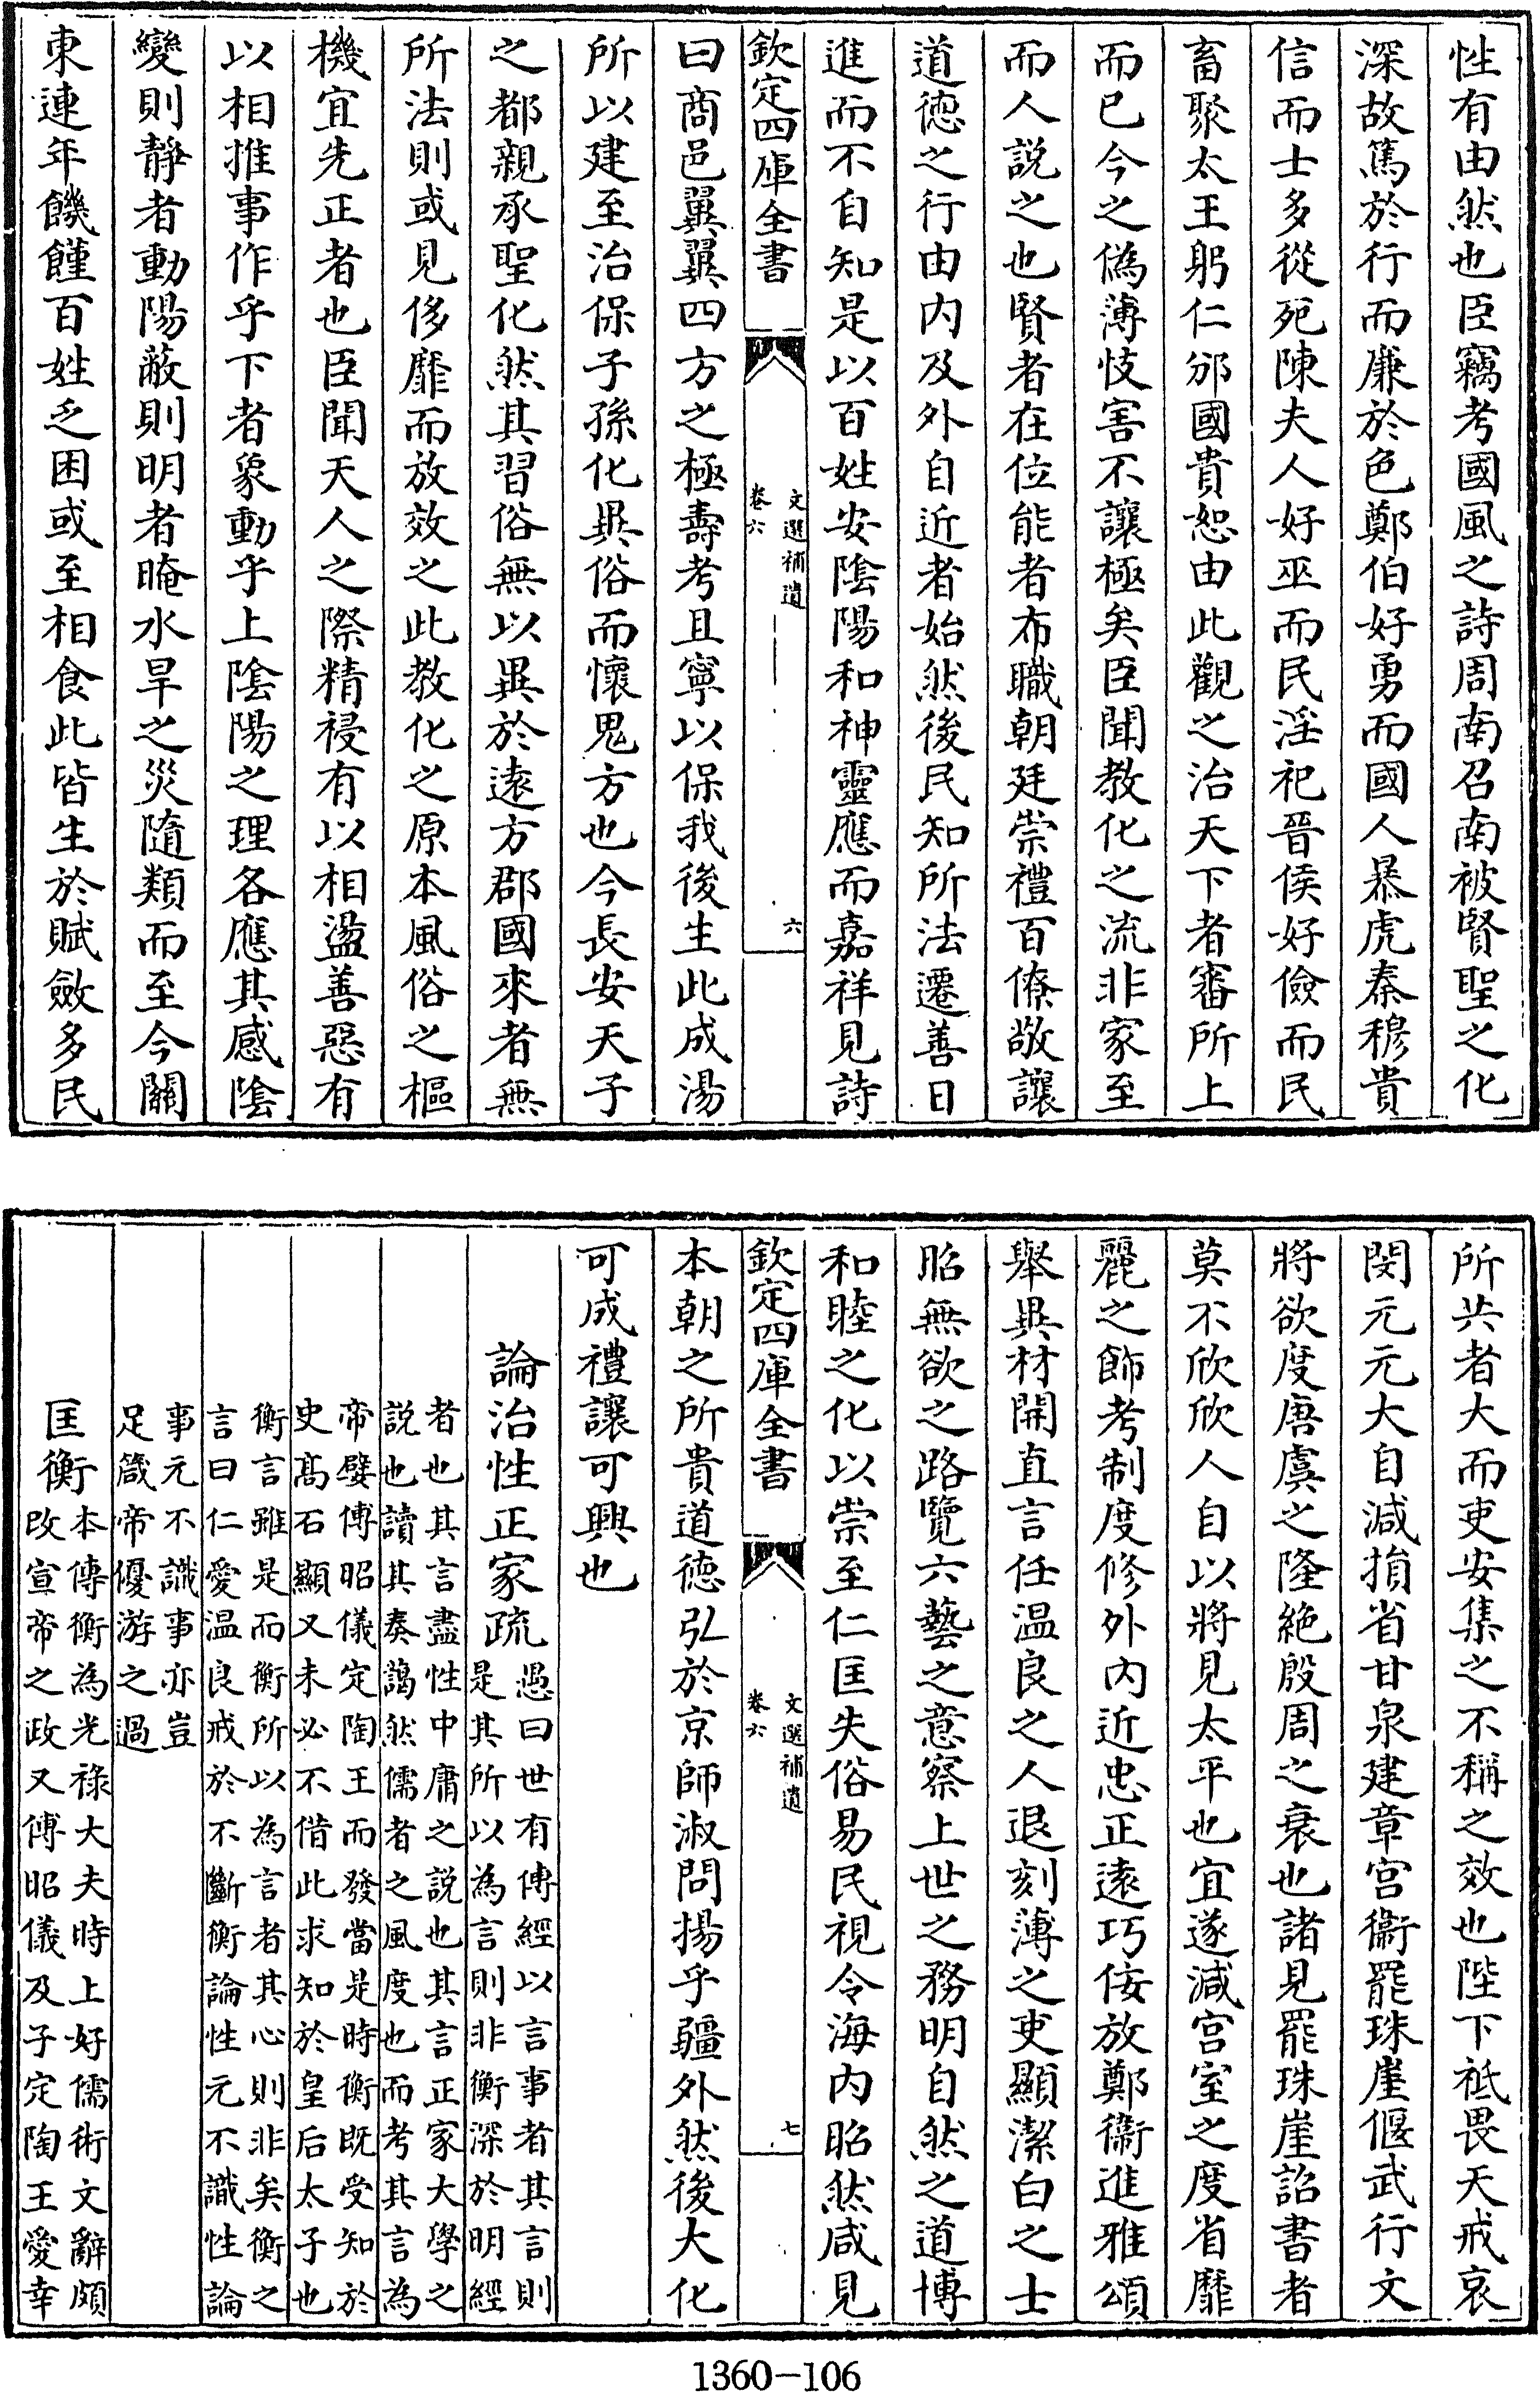 性有由然也臣竊考國風之詩周南召南被賢聖之化
深故篤於行而廉於色鄭伯好勇而國人暴虎秦穆貴
信而士多從死陳夫人好巫而民淫祀晉侯好儉而民
畜聚太王躬仁邠國貴恕由此觀之治天下者審所上
而已今之偽薄忮害不讓極矣臣聞教化之流非家至
而人說之也賢者在位能者布職朝廷崇禮百僚敬讓
道德之行由內及外自近者始然後民知所法遷善日
進而不自知是以百姓安隂陽和神靈應而嘉祥見詩
欽定四庫全書
文選補遺
卷六
六
曰商邑翼翼四方之極壽考且寧以保我後生此成湯
所以建至治保子孫化異俗而懷鬼方也今長安天子
之都親承聖化然其習俗無以異於遠方郡國來者無
所法則或見侈靡而放效之此教化之原本風俗之樞
機宜先正者也臣聞天人之際精祲有以相盪善惡有
以相推事作乎下者象動乎上隂陽之理各應其感隂
變則靜者動陽蔽則明者晻水旱之災隨類而至今關
東連年饑饉百姓乏困或至相食此皆生於賦斂多民
所共者大而吏安集之不稱之效也陛下祗畏天戒哀
閔元元大自減損省甘泉建章宮衞罷珠崖偃武行文
將欲度唐虞之隆絶殷周之衰也諸見罷珠崖詔書者
莫不欣欣人自以將見太平也宜遂減宮室之度省靡
麗之飾考制度修外內近忠正遠巧佞放鄭衞進雅頌
舉異材開直言任温良之人退刻薄之吏顯潔白之士
昭無欲之路覽六藝之意察上世之務明自然之道博
和睦之化以崇至仁匡失俗易民視令海內昭然咸見
欽定四庫全書
文選補遺
卷六
七
本朝之所貴道德弘於京師淑問揚乎疆外然後大化
可成禮讓可興也
論治性正家疏
愚曰世有傳經以言事者其言則
是其所以為言則非衡深於明經
者也其言盡性中庸之說也其言正家大學之
說也讀其奏藹然儒者之風度也而考其言為
帝嬖傅昭儀定陶王而發當是時衡既受知於
史髙石顯又未必不借此求知於皇后太子也
衡言雖是而衡所以為言者其心則非矣衡之
言曰仁愛温良戒於不斷衡論性元不識性論
事元不識事亦豈
足箴帝優游之過
匡衡
本傳衡為光祿大夫時上好儒術文辭頗
改宣帝之政又傅昭儀及子定陶王愛幸
1360-106